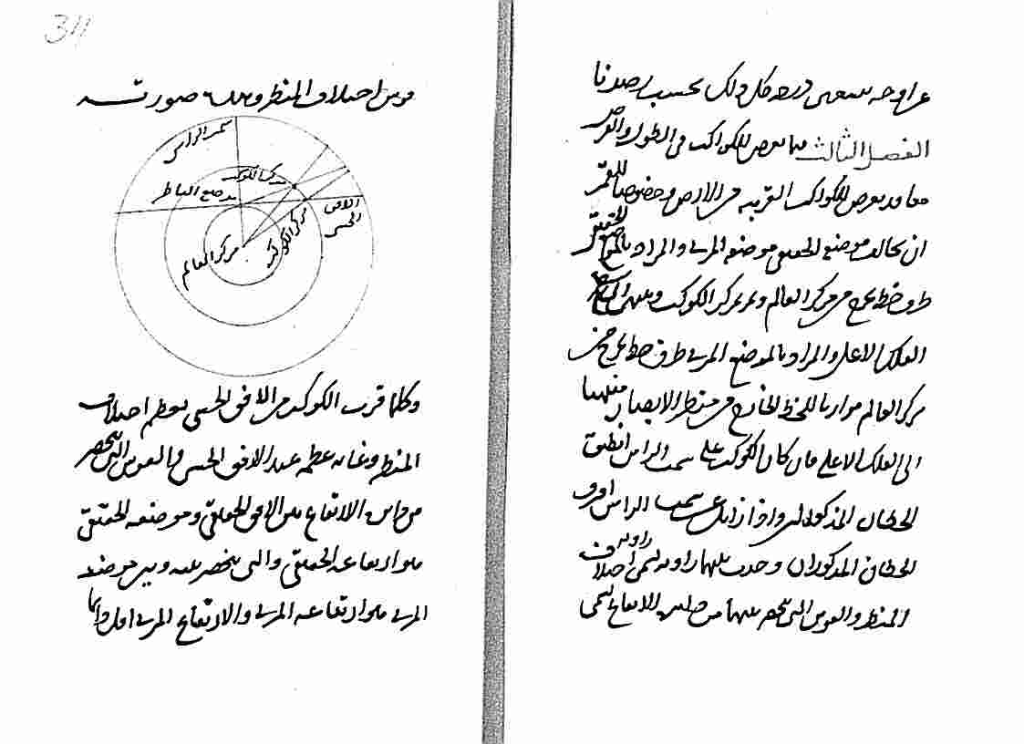 عن اوجه ينتقص درجه كل ذلك بحسب رصدنا
الفصل الثالث فيما يعرض للكواكب في الطول والعرض
مما قد يعرض للكواكب القريبه من الارض وخصوصا للقمر
ان يخالف موضعه الحقيقي موضعه المرىي والمراد بالموضع الحقيقي
طرف خط يخرج من مركز العالم ويمر بمركز الكوكب وينتهي الى سطح
الفلك الاعلى والمراد بالموضع المرىي طرف خط يخرج من
مركز العالم موازيا للخط الخارج من منظر الابصار منتهيا
الى الفلك الاعلى فان كان الكوكب على سمت الراس انطبق
الخطان المذكوران واذا زايل عن سمت الراس افترق
الخطان المذكوران وحدث بينهما زاويه تسمى زاويه اختلاف
المنظر والقوس التي تنحصر بينهما من دايره الارتفاع تسمى
34
قوس اختلاف المنظر وهذه صورته
سمت الراس
مركز الكوكب
موضع الناظر
الافق الحسي
مركز الكوكب
مركز العالم
وكلما قرب الكوكب من الافق الحسي يعظم اختلاف
المنظر وغايه عظمه عند الافق الحسي والقوس التي تنحصر
من دايره الارتفاع بين الافق الحقيقي وموضعه الحقيقي
هو ارتفاعه الحقيقي والتي تنحصر بينه وبين موضعه
المرىي هو ارتفاعه المرىي والارتفاع المرىي اقل دايما